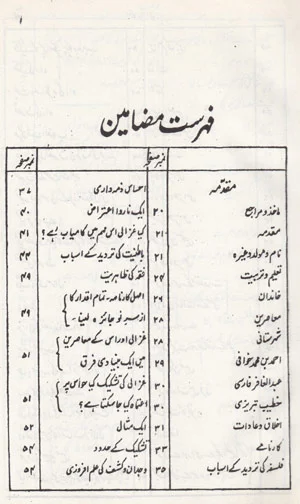 ۱
فہرست مضامین
نمبر صفحہ
مقدمہ
ماخذ و مراجع ۲۰
مقدمہ ۲۱
نام و مولد وغیرہ ۲۱
تعلیم و تربیت ۲۴
خاندان ۲۶
معاصرین ۲۸
شہرستانی ۲۸
احمد بن محمد خوافی ۲۹
عبدالغافر فارسی ۳۰
خطیب تبریزی ۳۰
اخلاق و عادات ۳۱
کارنامے ۳۳
فلسفہ کی تردید کے اسباب ۳۵
نمبر صفحہ
احساس ذمہ داری ۳۷
ایک ناروا اعتراض ۴۰
کیا غزالی اس مہم میں کامیاب ہے؟ ۴۱
باطنیت کی تردید کے اسباب ۴۴
فقہ کی ظاہریت ۴۹
اصل کارنامہ۔ تمام اقدار کا
از سر نو جائزہ لینا۔ ۴۹
غزالی اور اس کے معاصرین
میں ایک بنیادی فرق ۵۱
غزالی کی تشکیک کیا حواس پر
اعتماد کیا جا سکتا ہے؟ ۵۱
ایک مثال ۵۲
تشکیک کے حدود ۵۴
وجدان و کشف کی علم افروزی ۵۴